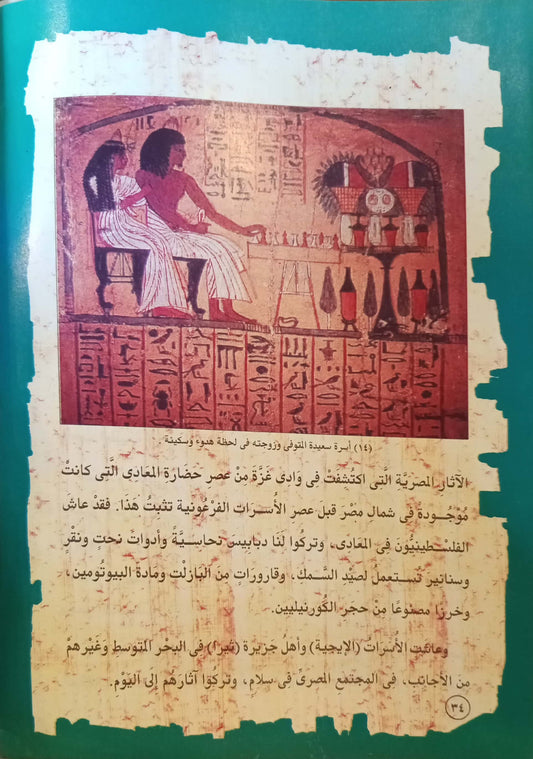 (١٤) أسرة سعيدة المتوفى وزوجته فى لحظة هدوء وسكينة
الآثار المصرَيَّة الَّتى اكتُشفتْ فى وَادى غَزَّة مِنْ عصرِ حَضارَة المعَادِى الَّتِى كانتْ
مُوْجُودةً فِى شمال مصْرَ قبل عصرِ الأُسرَات الفرْعُونية تثبتُ هَذا. فقدْ عاشَ
الفلسْطينيُّونَ فِى المعَادى، وتركُوا لنَا دبابِيسَ نحاسِيَّةً وأدواتَ نحتٍ ونقْرٍ
وسنانير تُستعملُ لصيْدِ السَّمك، وقارورَاتٍ منَ البَازلْت ومادة البيوتُومين،
وخرزًا مصنُوعًا مِنْ حجرِ الكُورنيليين.
وعاشت الأُسرَات (الإيجية) وأهلُ جزيرة (ثيرا) فى البحْر المتوسط وغَيْرهمْ
من الأجانبِ، فِى المجتمع المصرىِّ فِى سلامٍ، وتركُوا آثارَهُم إلى اليَوْم.
٣٤